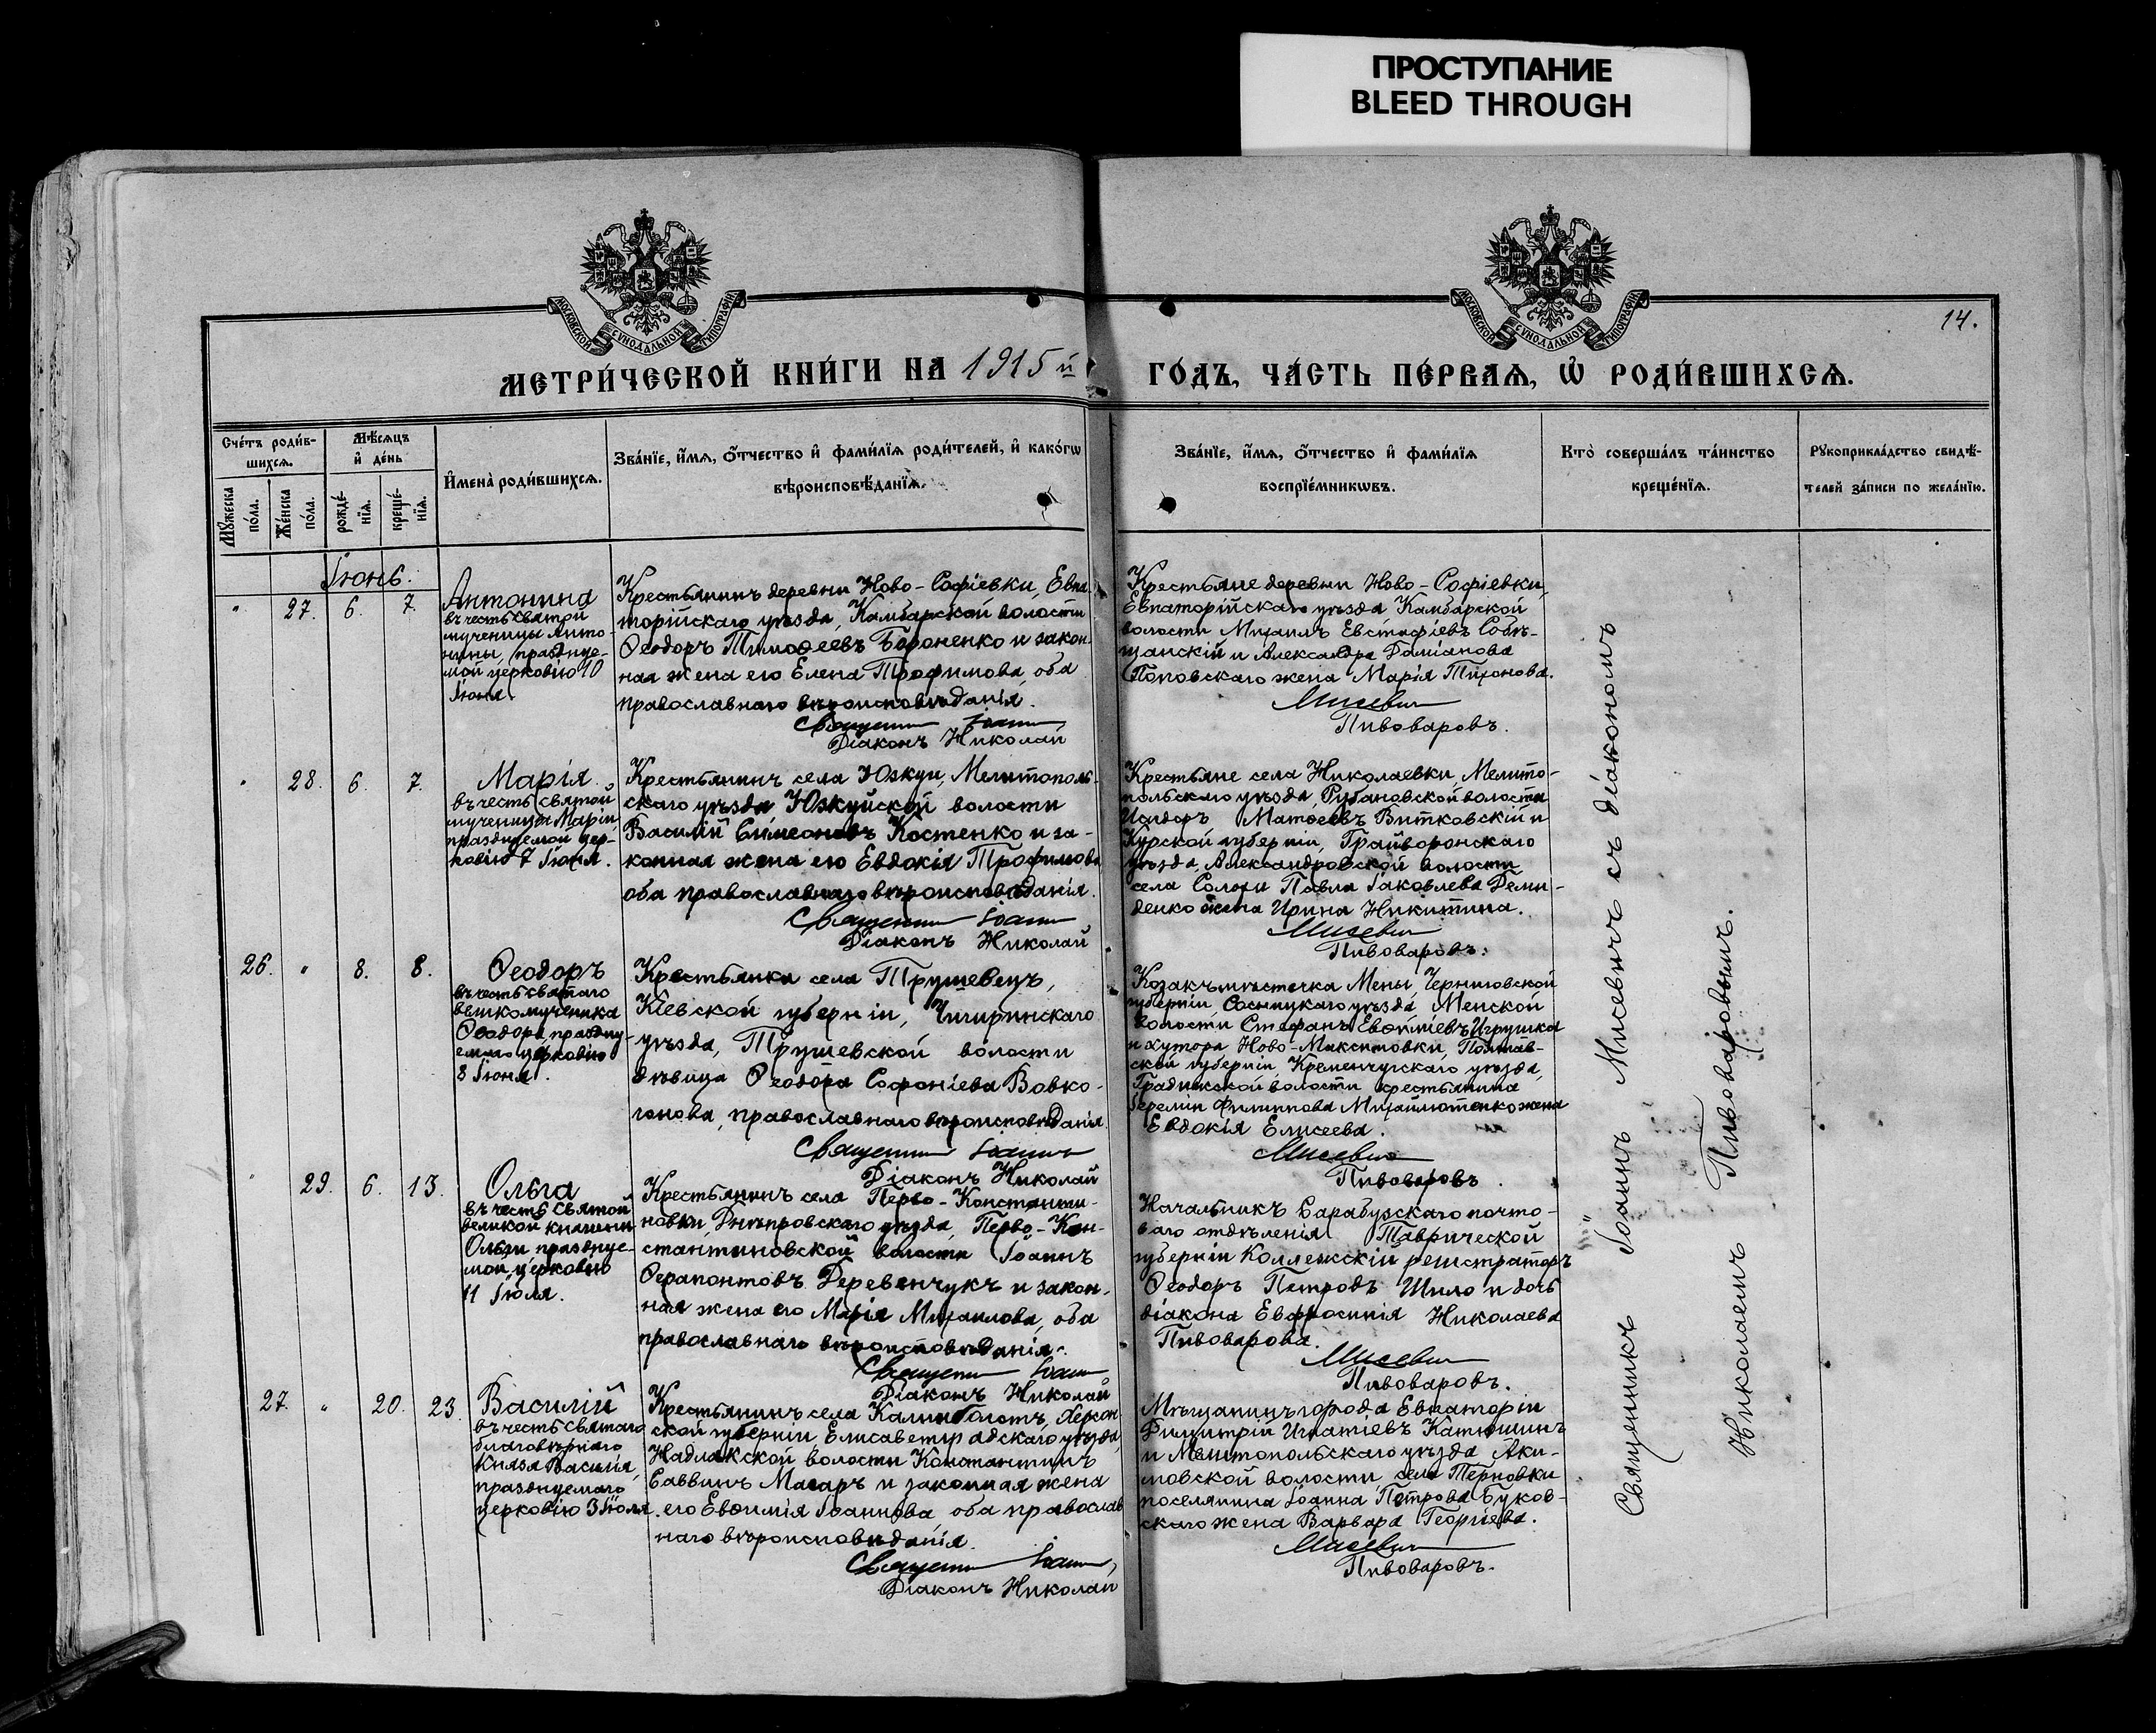 ПРОСТУПАНИЕ
BLEED THROUGH
МОСКОВСКОЙ СѴНОДАЛЬНОЙ ТИПОГРАФІИ
МОСКОВСКОЙ СѴНОДАЛЬНОЙ ТИПОГРАФІИ
14.
МЕТРИ́ЧЕСКОЙ КНИ́ГИ НА 1915 й
ГО́ДЪ, ЧА́СТЬ ПЕ́РВАѦ, Ѡ҆ РОДИ́ВШИХСѦ.
Сче́тъ роди́в-
шихсѧ.
Мѣ́сѧцъ
и҆ де́нь
И҆мена̀ роди́вшихсѧ.
Зва́нїе, и҆́мѧ, ѻ҆́тчество и҆ фами́лїѧ роди́телей, и҆ како́гѡ
вѣроисповѣ́данїѧ.
Мꙋ́жеска
по́ла.
Же́нска
по́ла.
рожде́-
нїѧ.
креще́-
нїѧ.
Зва́нїе, и҆́мѧ, ѻ҆́тчество и҆ фами́лїѧ
воспрїе́мникѡвъ.
Кто̀ соверша́лъ та́инство
креще́нїѧ.
Рꙋкоприкла́дство свидѣ́-
телей за́писи по жела́нїю.
Іюнь.
" 27. 6. 7.
Антонина
въ честь святой
мученицы Анто-
нины, празднуе-
мой церковію 10
Іюня
Крестьянинъ деревни Ново-Софіевки, Евпа-
торійскаго уѣзда, Камбарской волости
Ѳеодоръ Тимоѳеевъ Бороненко и закон-
ная жена его Елена Трофимова, оба
православнаго вѣроисповѣданія.
Священник Іоанн
Діаконъ Николай
Крестьяне деревни Ново-Софіевки,
Евпаторійскаго уѣзда Камбарской
волости Михаилъ Евстафіевъ Собѣ-
щанскій и Александра Даміанова
Поповскаго жена Марія Тихонова.
Мисевич
Пивоваровъ.
" 28. 6. 7.
Марія.
въ честь святой
мученицы Маріи
празднуемой цер-
ковію 7 Іюня.
Крестьянинъ села Юзкуи, Мелитополь-
скаго уѣзда Юзкуйской волости
Василій Симеоновъ Костенко и за-
конная жена его Евдокія Трофимова
оба православнаго вѣроисповѣданія.
Священник Іоанн
Діаконъ Николай
Крестьяне села Николаевки, Мелито-
польскаго уѣзда, Рубановской волости
Исидоръ Матѳеевъ Витковскій и
Курской губерніи, Грайворонскаго
уѣзда, Александровской волости
села Солохи Павла Іаковлева Деми-
денко жена Ирина Никитина.
Мисевич
Пивоваровъ.
26. " 8. 8.
Ѳеодоръ
въ честь святаго
великомученика
Ѳеодора, праздну-
емаго церковію
8 Іюня.
Крестьянка села Трушевецъ,
Кіевской губерніи, Чигиринскаго
уѣзда, Трушевской волости
дѣвица Ѳеодора Софоніева Вовко-
гонова, православнаго вѣроисповѣданія.
Священник Іоаннъ
Діаконъ Николай
Козакъ мѣстечка Мены, Черниговской
губерніи, Сосницкаго уѣзда, Менской
волости Стефанъ Евѳиміевъ Игрушка
и хутора Ново-Максимовки, Полтав-
ской губерніи, Кременчугскаго уѣзда,
Градижской волости крестьянина
Іереміи Филиппова Михайлютенко жена
Евдокія Елисеева.
Мисевич
Пивоваровъ.
" 29. 6. 13.
Ольга
въ честь святой
великой княгини
Ольги празднуе-
мой церковію
11 Іюля.
Крестьянинъ села Перво-Константи-
новки Днѣпровскаго уѣзда, Перво-Кон-
стантиновской волости Іоаннъ
Ѳерапонтовъ Деревенчукъ и закон-
ная жена его Марія Михаилова, оба
православнаго вѣроисповѣданія.
Священник Іоанн
Діаконъ Николай
Начальникъ Сарабузскаго почто-
ваго отдѣленія Таврической
губерніи Коллежскій регистраторъ
Ѳеодоръ Петровъ Шило и дочь
діакона Евфросинія Николаева
Пивоварова.
Мисевич
Пивоваровъ.
27. " 20. 23.
Василій
въ честь святаго
благовѣрнаго
князя Василія,
празднуемаго
церковію 3 Іюля.
Крестьянинъ села Калиболотъ, Херсон-
ской губерніи Елисаветградскаго уѣзда,
Надлакской волости Константинъ
Саввинъ Магаръ и законная жена
его Евѳимія Іоаннова, оба православ-
наго вѣроисповѣданія.
Священник Іоанн,
Діаконъ Николай
Мѣщанинъ города Евпаторіи
Димитрій Игнатіевъ Катюшинъ
и Мелитопольскаго уѣзда Аки-
мовской волости села Терновки
поселянина Іоанна Петрова Буков-
скаго жена Варвара Георгіева.
Мисевич
Пивоваровъ.
Священникъ Іоаннъ Мисевичъ съ діакономъ
Николаемъ Пивоваровымъ.